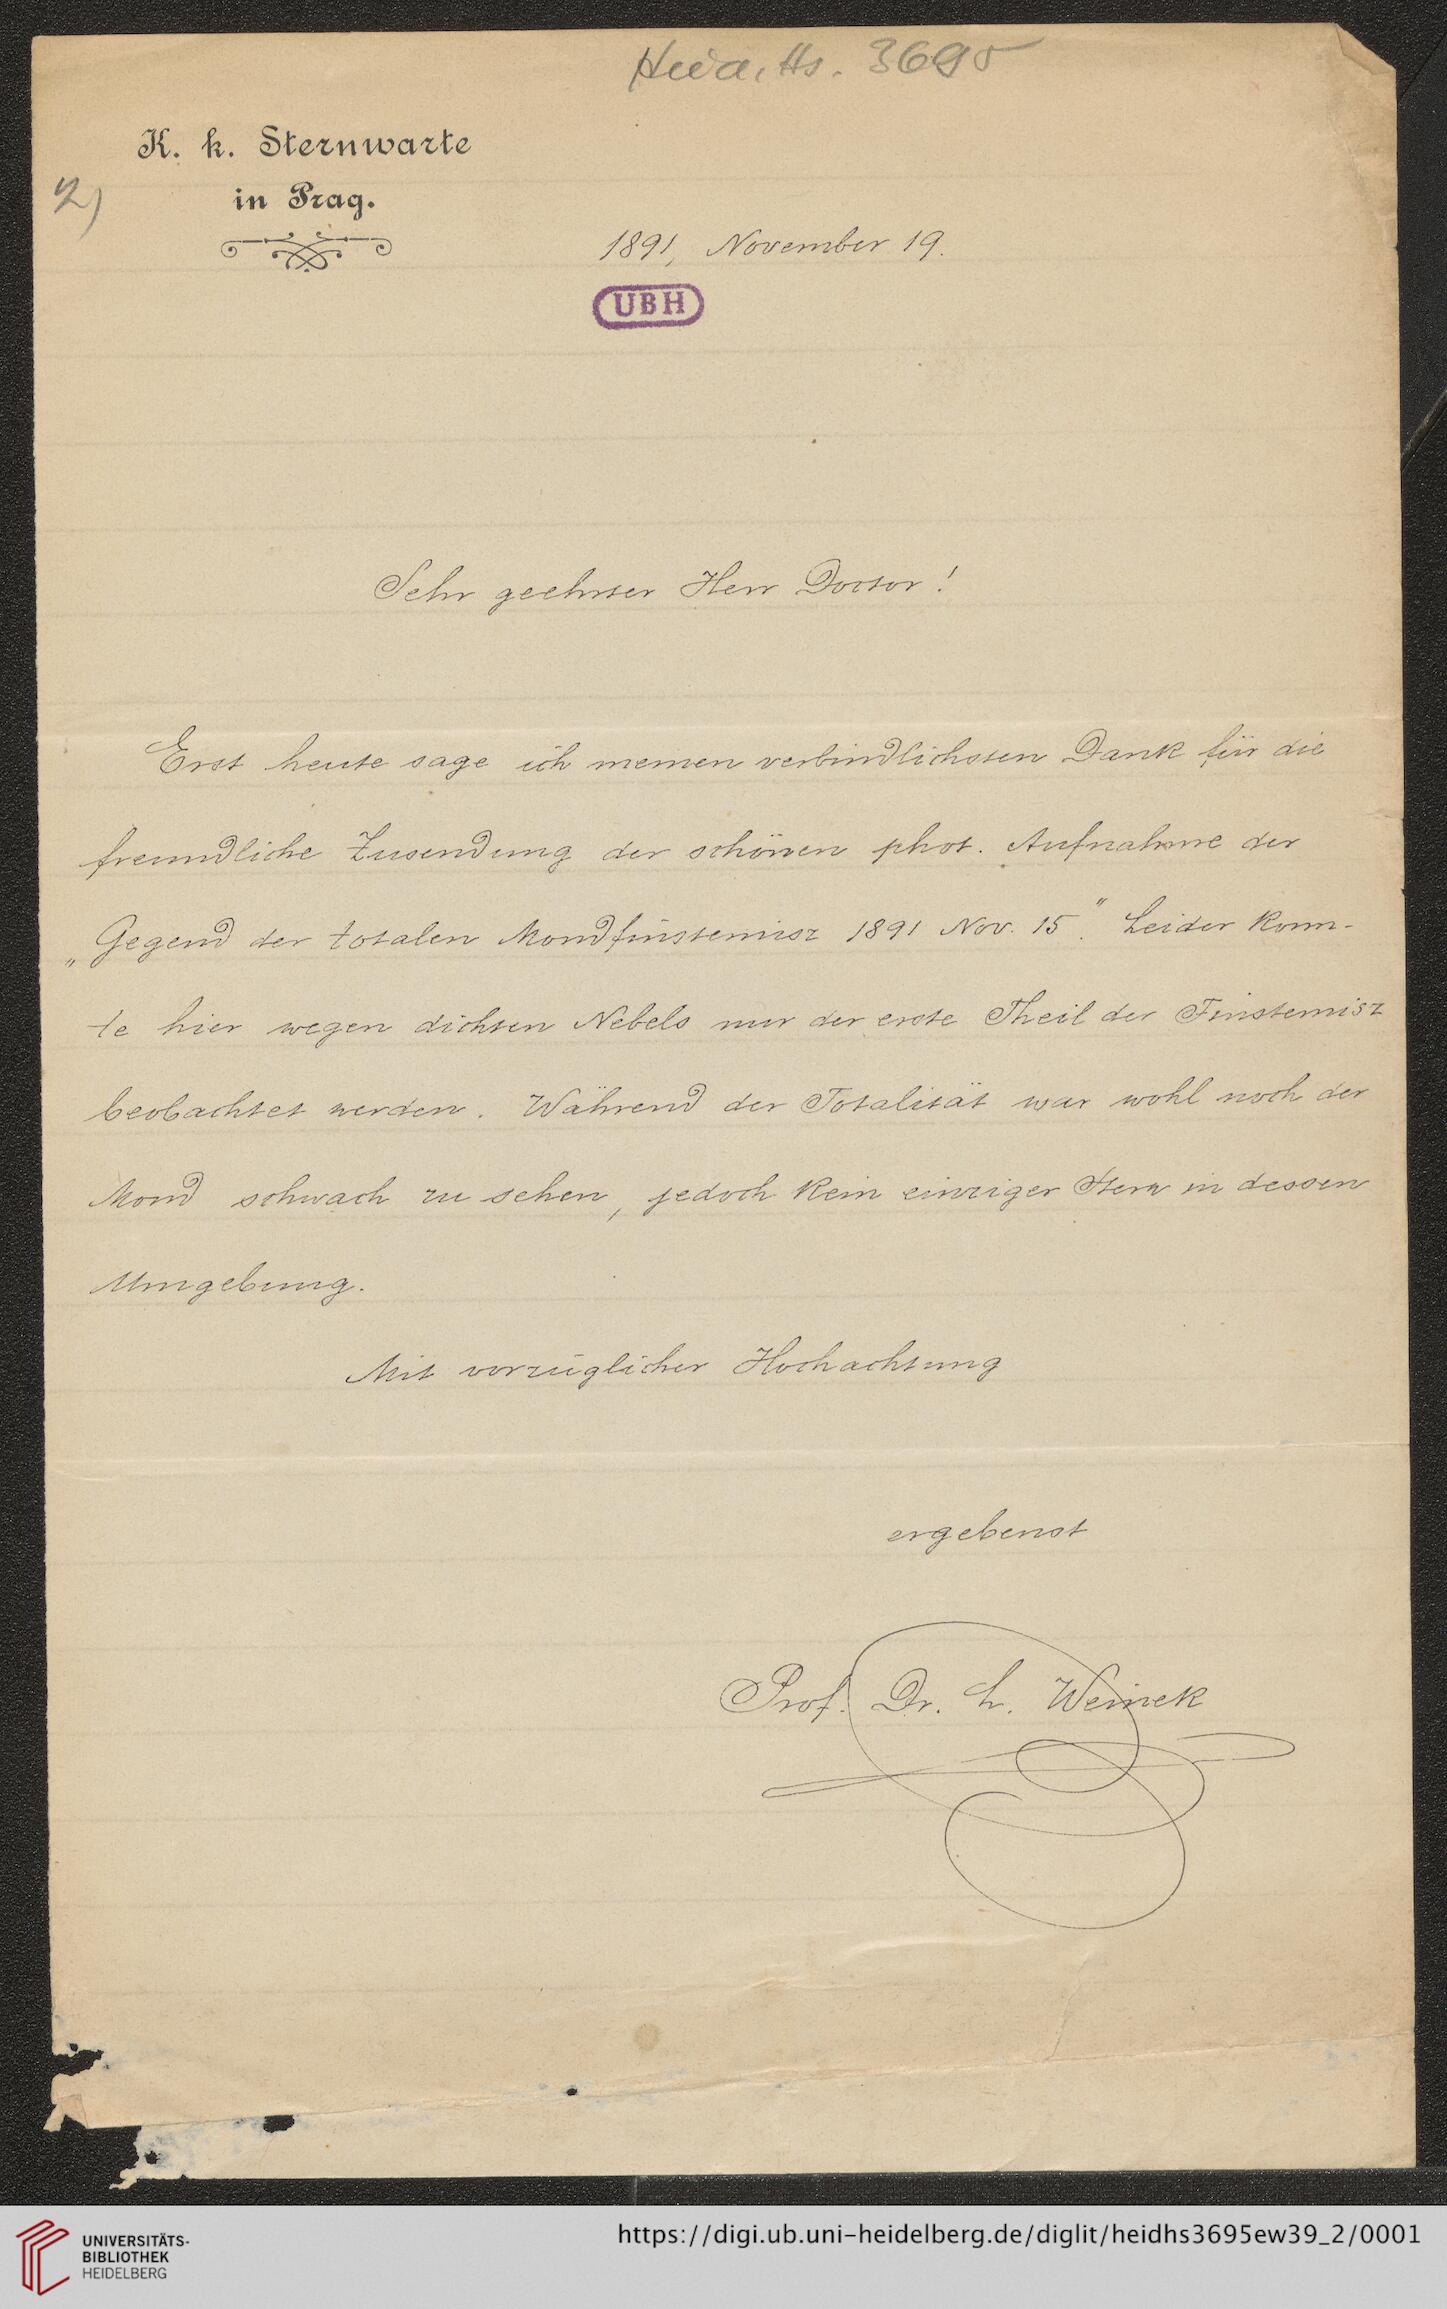 Heid. Hs. 3695
K. k. Sternwarte
2)
in Prag.
1891, November 19.
UBH
Sehr geehrter Herr Doctor!
Erst heute sage ich meinen verbindlichsten Dank für die
freundliche Zusendung der schönen phot. Aufnahme der
„Gegend der totalen Mondfinsternisz 1891 Nov. 15." Leider konn-
te hier wegen dichten Nebels nur der erste Theil der Finsternisz
beobachtet werden. Während der Totalität war wohl noch der
Mond schwach zu sehen, jedoch kein einziger Stern in dessen
Umgebung.
Mit vorzüglicher Hochachtung
ergebenst
Prof. Dr. L. Weinek
UNIVERSITÄTS-
BIBLIOTHEK
HEIDELBERG
https://digi.ub.uni-heidelberg.de/diglit/heidhs3695ew39_2/0001